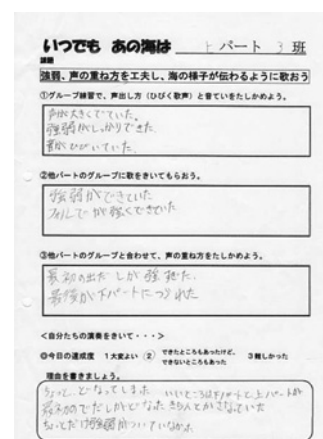 いつでも あの海は 上パート 3 班
課題
強弱、声の重ね方を工夫し、海の様子が伝わるように歌おう
①グループ練習で、声出し方（ひびく歌声）と音ていをたしかめよう。
声が大きくでていた。
強弱がしっかりできた。
声がひびいていた。
②他パートのグループに歌をきいてもらおう。
強弱ができていた
フォルテが強くできていた
③他パートのグループと合わせて、声の重ね方をたしかめよう。
最初の出だしが強
最後が下パートにつられた
＜自分たちの演奏をきいて・・・＞
◎今日の達成度 1大変よい ② できたところもあったけど、
できないところもあった 3難しかった
理由を書きましょう。
ちょっと、どなってしまった いいところは下パートと上パートが
最初のでだしがどなった きちんとかさなっていた
ちょっとだけ強弱がついていなかった